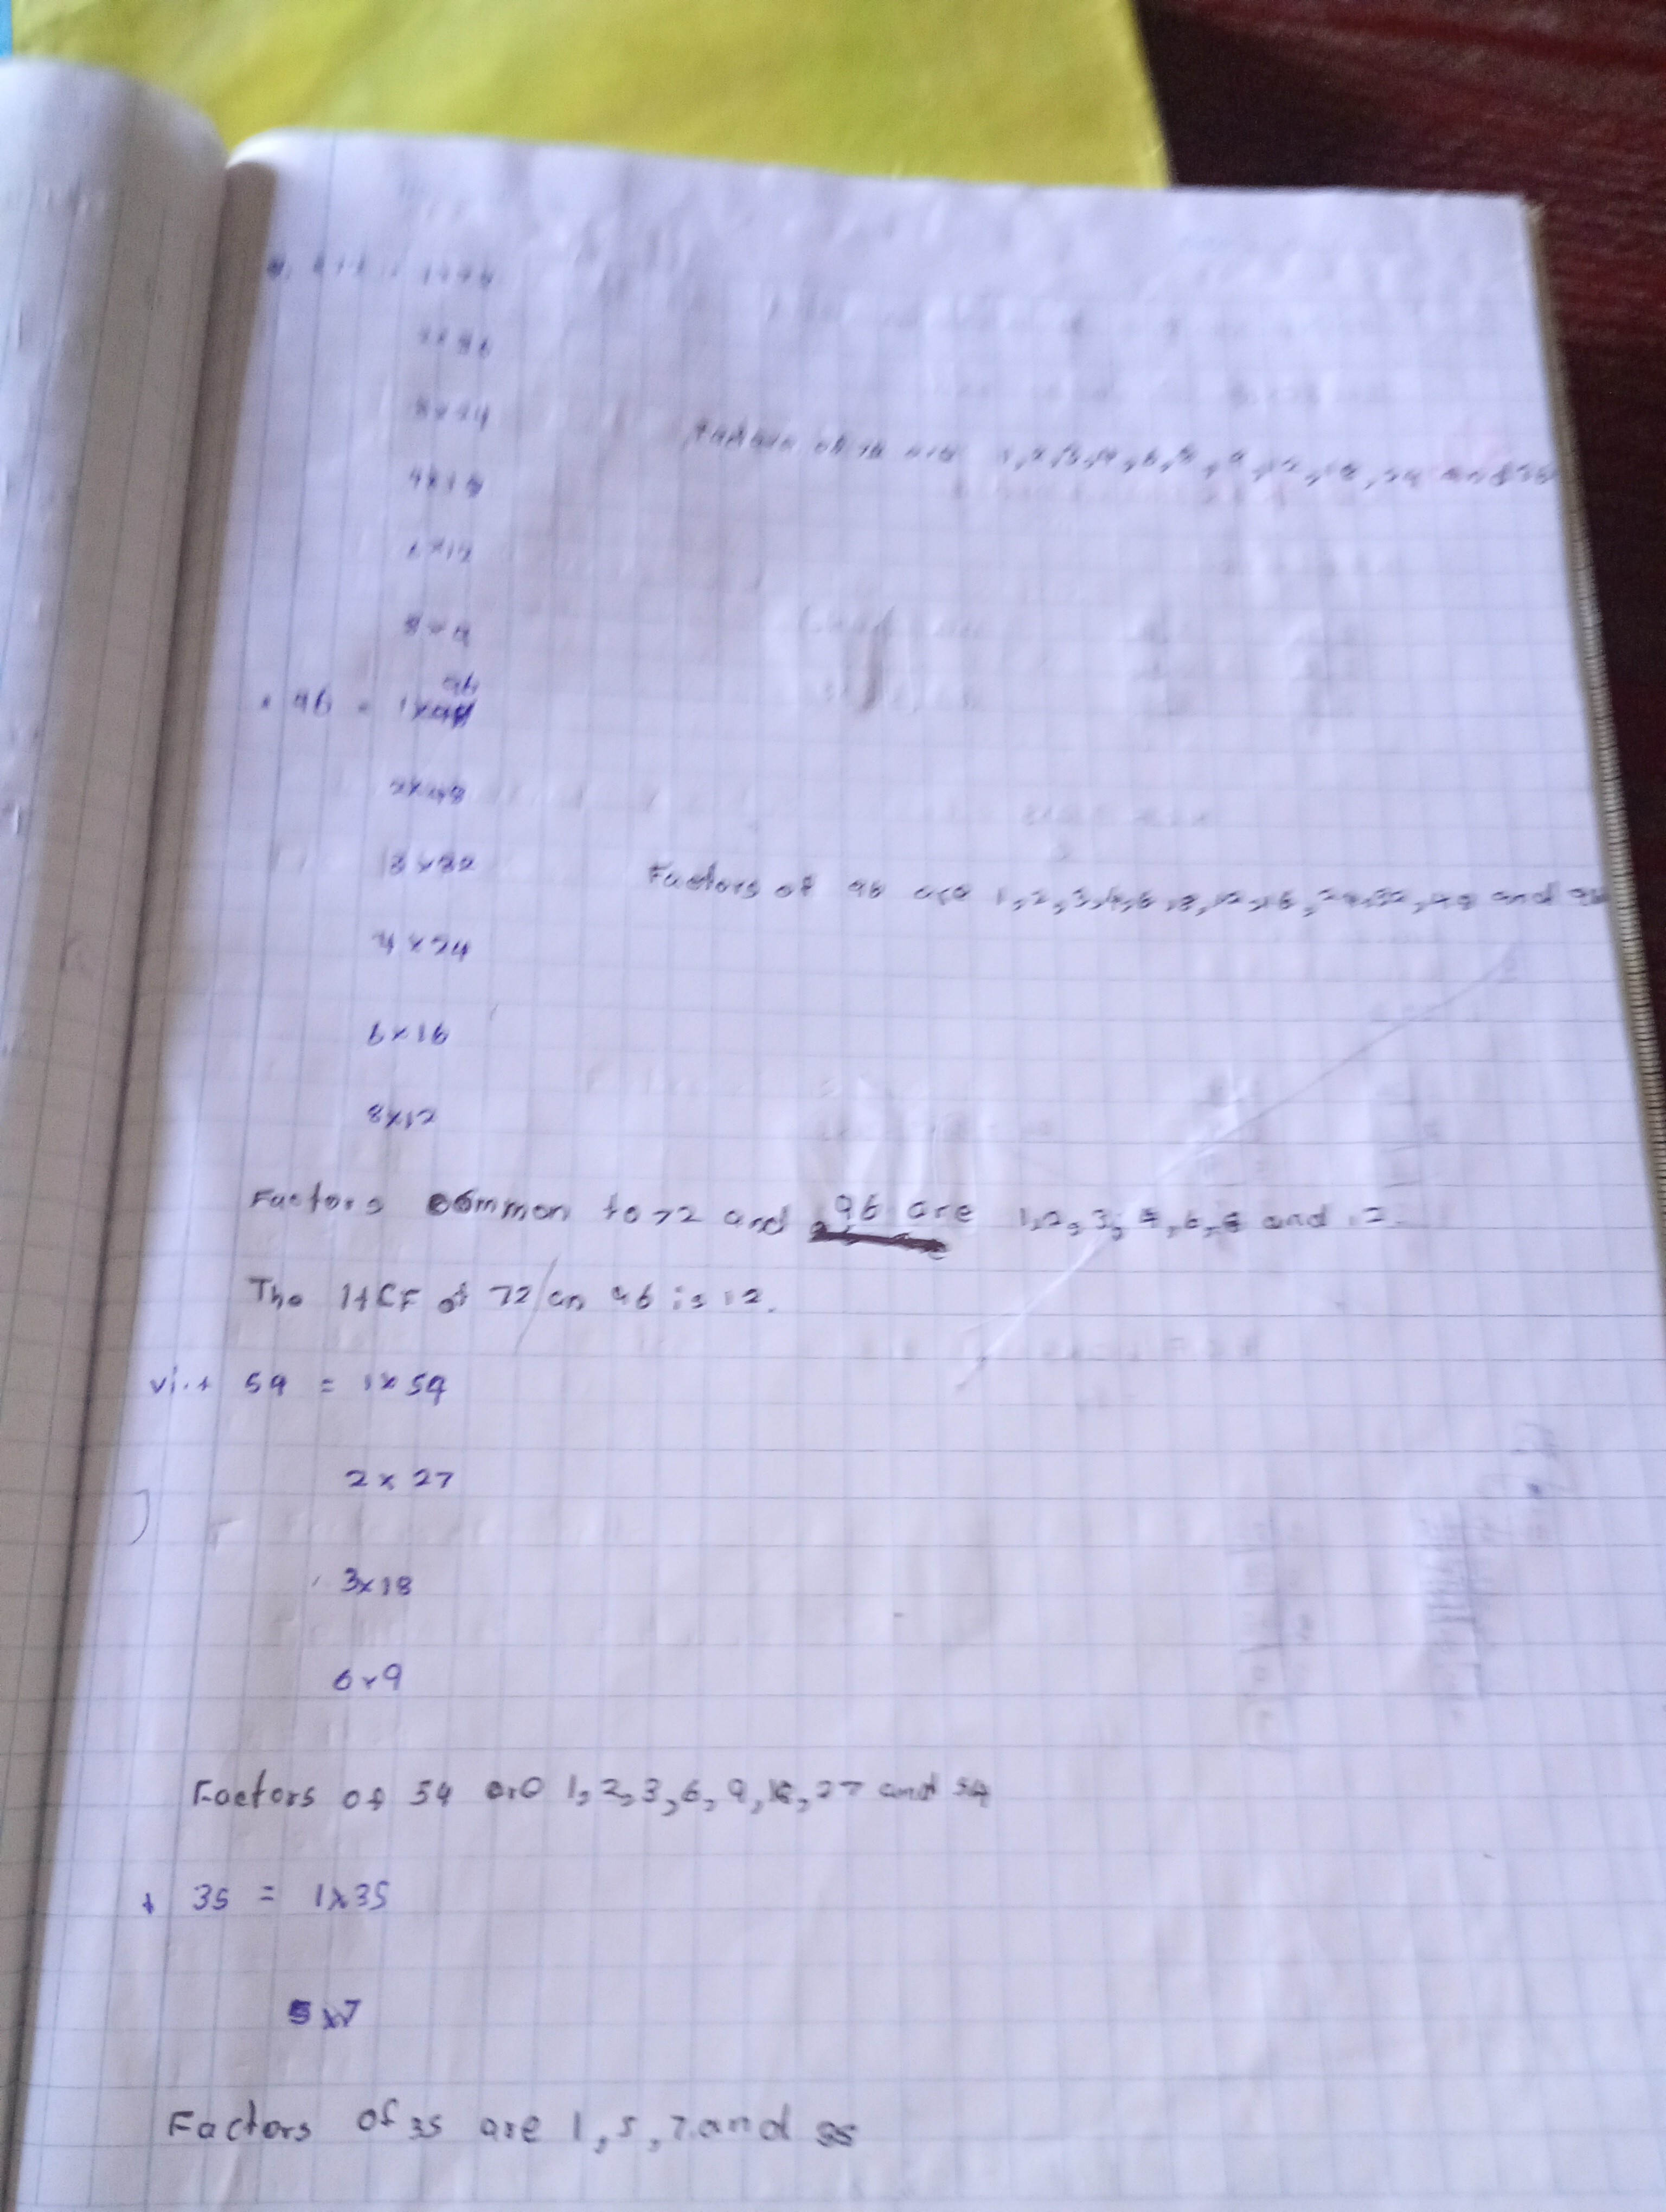 2x36
3x24
4x18
6x12
Factors of 72 are 1,2,3,4,6,8,9,12,18,24 and 36
8x9
96
96 = 1x
2x48
3x32
Factors of 96 are 1,2,3,4,6,8,12,16,24,32,48 and 96
4x24
6x16
8x12
Factors common to 72 and 96 are 1,2,3,4,6,8 and 12.
The HCF of 72 an 96 is 12.
vi. 54 = 1x54
2x27
3x18
6x9
Factors of 54 are 1,2,3,6,9,18,27 and 54
35 = 1x35
5x7
Factors of 35 are 1,5,7 and 35